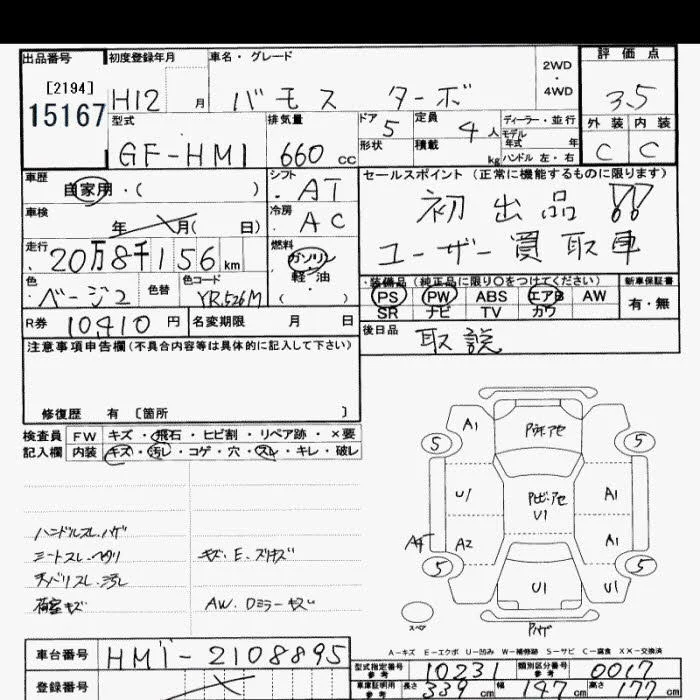 出品番号 初度登録年月 車名・グレード 評価点
[2194] 2WD・4WD
15167 H12 月 バモス ターボ 3.5
型式 排気量 ドア 定員 ディーラー・並行 外装 内装
GF-HM1 660cc 5 4人 モデル年式 年 C C
形状 積載 kg ハンドル 左・右
車歴 シフト セールスポイント (正常に機能するものに限ります)
自家用・( ) AT 初出品!!
車検 冷房
年 月( 日) AC ユーザー買取車
走行 燃料
20万8千156km ガソリン
軽油
( )
装備品 (純正品に限り○をつけてください) 新車保証書
色 色替 色コード PS PW ABS エアB AW 有・無
ベージ2 YR526M SR ナビ TV カワ
R券 10410円 名変期限 月 日 後日品 取説
注意事項申告欄(不具合内容等は具体的に記入して下さい)
修復歴 有 [箇所 ]
検査員 FW キズ・飛石・ヒビ割・リペア跡・×要
記入欄 内装 キズ・汚レ・コゲ・穴・スレ・キレ・破レ
ハンドルスレ.ハゲ
シートスレ.
キズ.E.
天バリスレ.汚レ
荷室キズ AW.Dミラーキズ
A1
5 5
U1 U1 A1
A2 A1
5 5
U1 U1
スペア
A-キズ E-エクボ U-凹み W-補修跡 S-サビ C-腐食 XX-交換済
車台番号 HM1-2108895
型式指定番号 参考 10231 類別区分番号 参考 0017
登録番号
車庫証明用 参考 長さ 339cm 幅 147cm 高さ 177cm